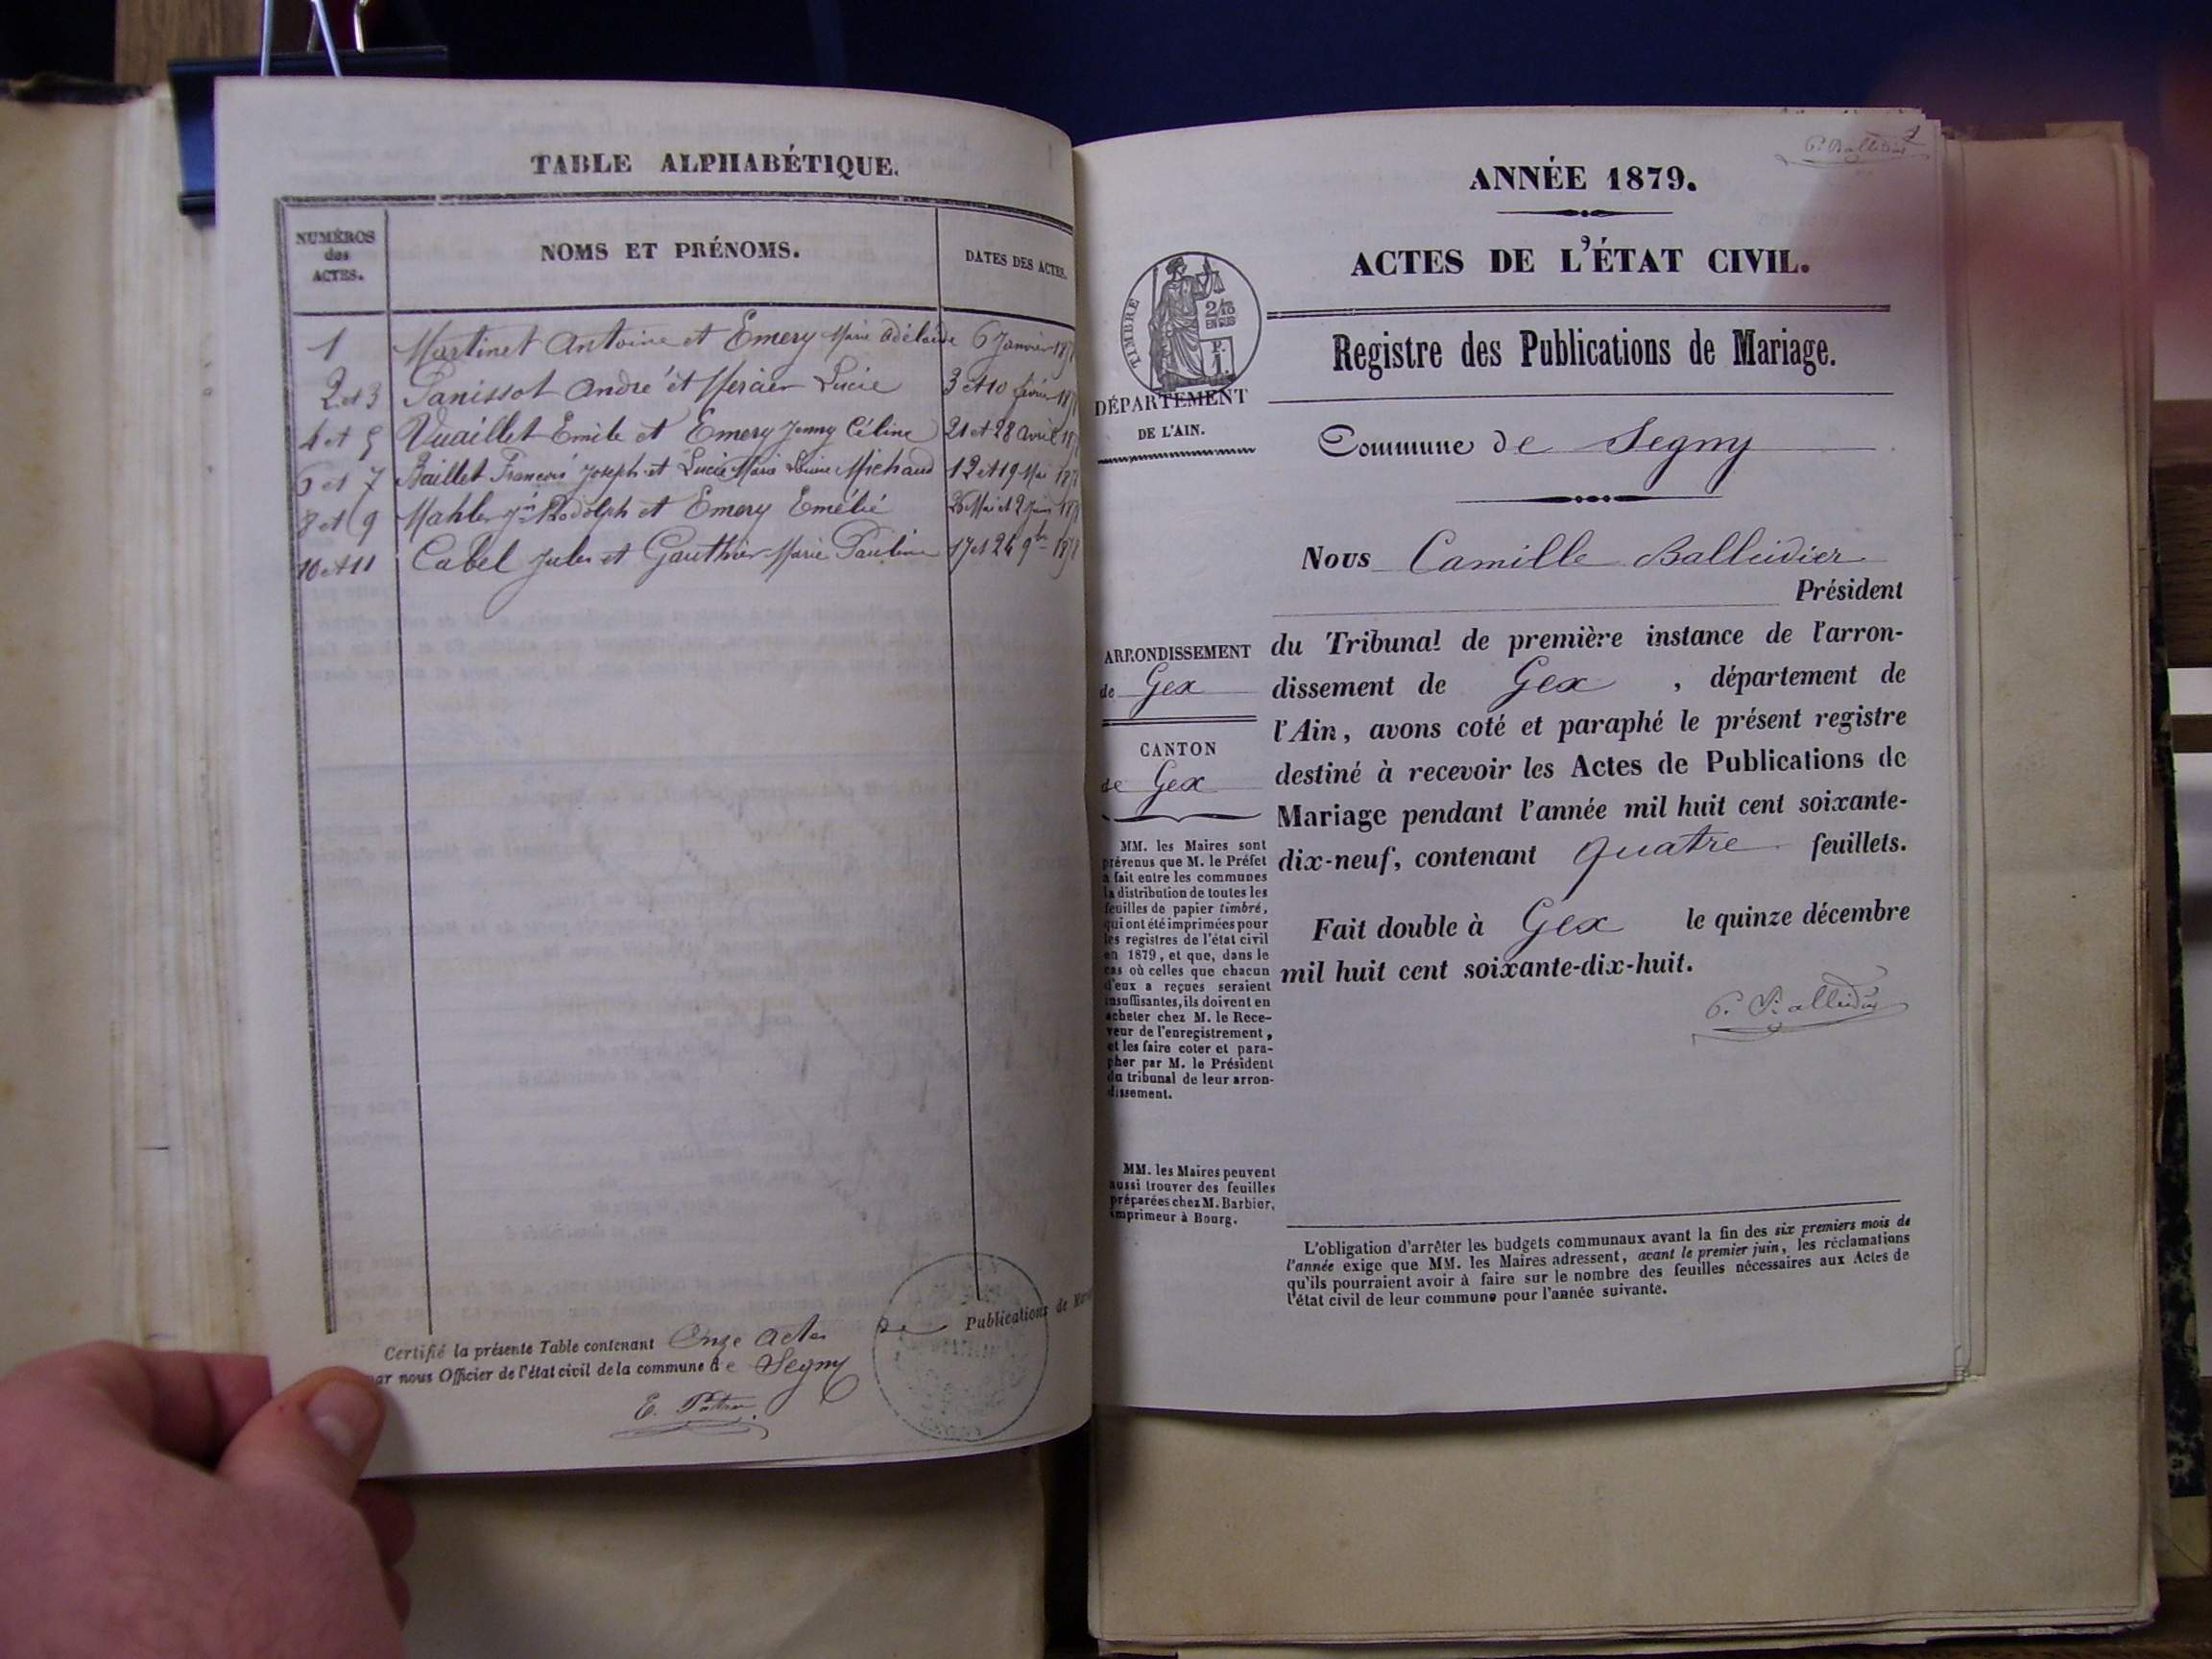 TABLE ALPHABÉTIQUE.
NUMÉROS
des
ACTES.
NOMS ET PRÉNOMS.
DATES DES ACTES.
1 Martinet Antoine et Emery Marie Adélaïde 6 Janvier 187
2 et 3 Panissot André et Mercier Lucie 3 et 10 février 187
4 et 5 Vuaillet Emile et Emery Jenny Céline 21 et 28 avril 187
6 et 7 Baillet François Joseph et Lucie Marie Louise Michaud 12 et 19 Mai 187
8 et 9 Mahler Rodolph et Emery Emélie 26 Mai et 2 Juin 187
10 et 11 Cabel Jules et Gauthier Marie Pauline 17 et 24 9bre 187
Certifié la présente Table contenant Onze actes de Publications de
par nous Officier de l'état civil de la commune de Segny
E.
C. Balleidier
ANNÉE 1879.
ACTES DE L'ÉTAT CIVIL.
TIMBRE
2/10
EN SUS
P.
1.
Registre des Publications de Mariage.
DÉPARTEMENT
DE L'AIN.
Commune de Segny
Nous Camille Balleidier
Président
du Tribunal de première instance de l'arron-
dissement de Gex, département de
l'Ain, avons coté et paraphé le présent registre
destiné à recevoir les Actes de Publications de
Mariage pendant l'année mil huit cent soixante-
dix-neuf, contenant quatre feuillets.
Fait double à Gex le quinze décembre
mil huit cent soixante-dix-huit.
C. Balleidier
ARRONDISSEMENT
de Gex
CANTON
de Gex
MM. les Maires sont
prévenus que M. le Préfet
a fait entre les communes
la distribution de toutes les
feuilles de papier timbré,
qui ont été imprimées pour
les registres de l'état civil
en 1879, et que, dans le
cas où celles que chacun
d'eux a reçues seraient
insuffisantes, ils doivent en
acheter chez M. le Rece-
veur de l'enregistrement,
et les faire coter et para-
pher par M. le Président
du tribunal de leur arron-
dissement.
MM. les Maires peuvent
aussi trouver des feuilles
préparées chez M. Barbier,
imprimeur à Bourg.
L'obligation d'arrêter les budgets communaux avant la fin des six premiers mois de
l'année exige que MM. les Maires adressent, avant le premier juin, les réclamations
qu'ils pourraient avoir à faire sur le nombre des feuilles nécessaires aux Actes de
l'état civil de leur commune pour l'année suivante.